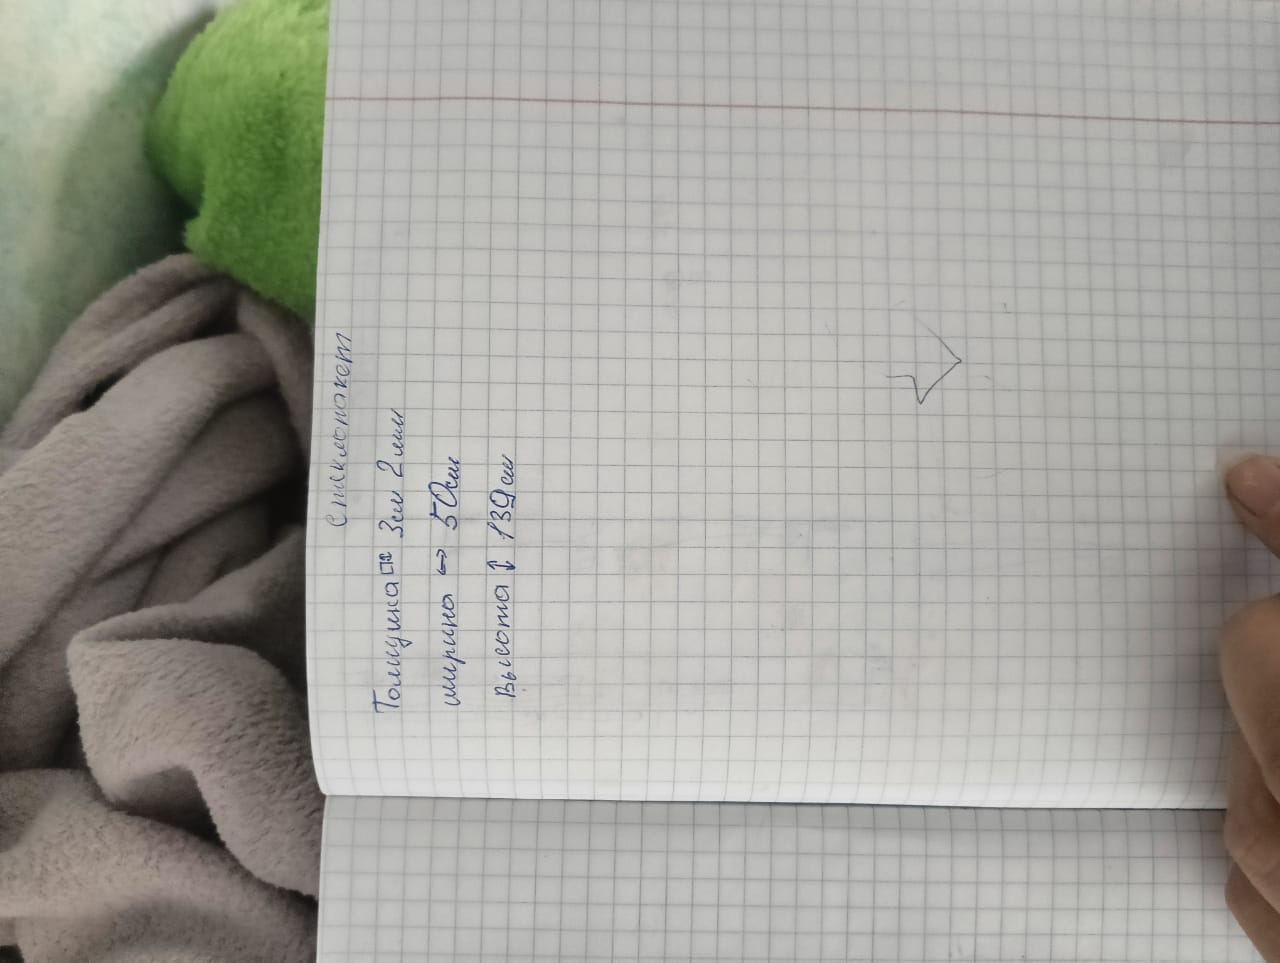 Стеклопакет
Толщина 3см 2мм
ширина ↔ 50см
Высота ↕ 139см